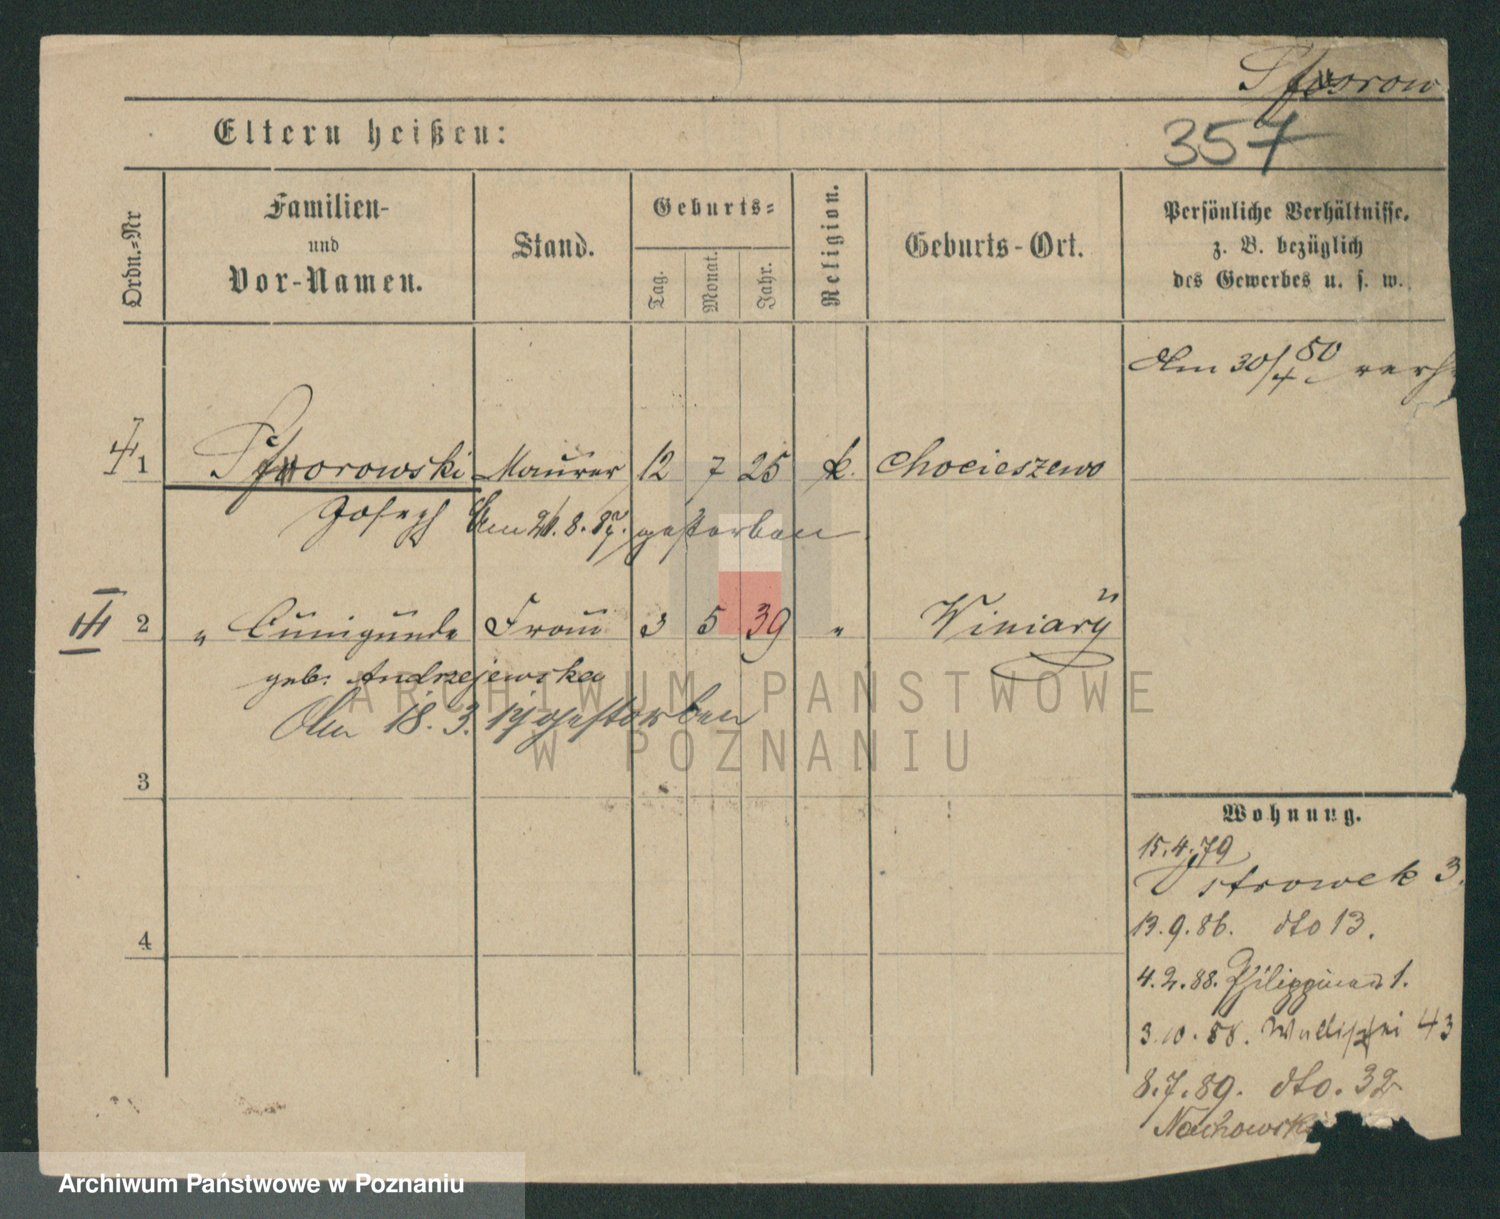 357
Eltern heißen:
Ordn.=Nr
Familien-
und
Vor-Namen.
Stand.
Geburts=
Tag.
Monat.
Jahr.
Religion.
Geburts-Ort.
Persönliche Verhältnisse.
z. B. bezüglich
des Gewerbes u. s. w.
Am 30/4 50 verh
1 Maurer 12 7 25 k. Chocieszewo
Joseph Am 21.8.87. gestorben
2 " Cunigunde Frau 3 5 39 " Winiary
geb. Andrzejewska
Am 18.3.19 gestorben
3
4
Wohnung.
15.4.79
Ostrowek 3.
13.9.86. dto 13.
4.2.88. Philippinen 1.
3.10.88. Wallischei 43
8.7.89. dto. 32
ARCHIWUM PAŃSTWOWE
W POZNANIU
Archiwum Państwowe w Poznaniu